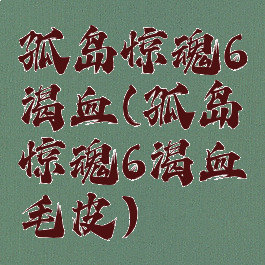 孤岛惊魂6
渴血(孤岛
惊魂6渴血
毛皮)